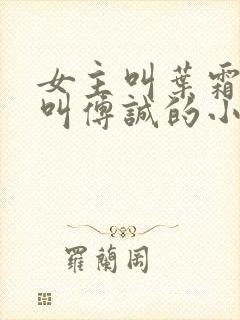 女主叫葉霜
叫傅誠的小
羅蘭岡